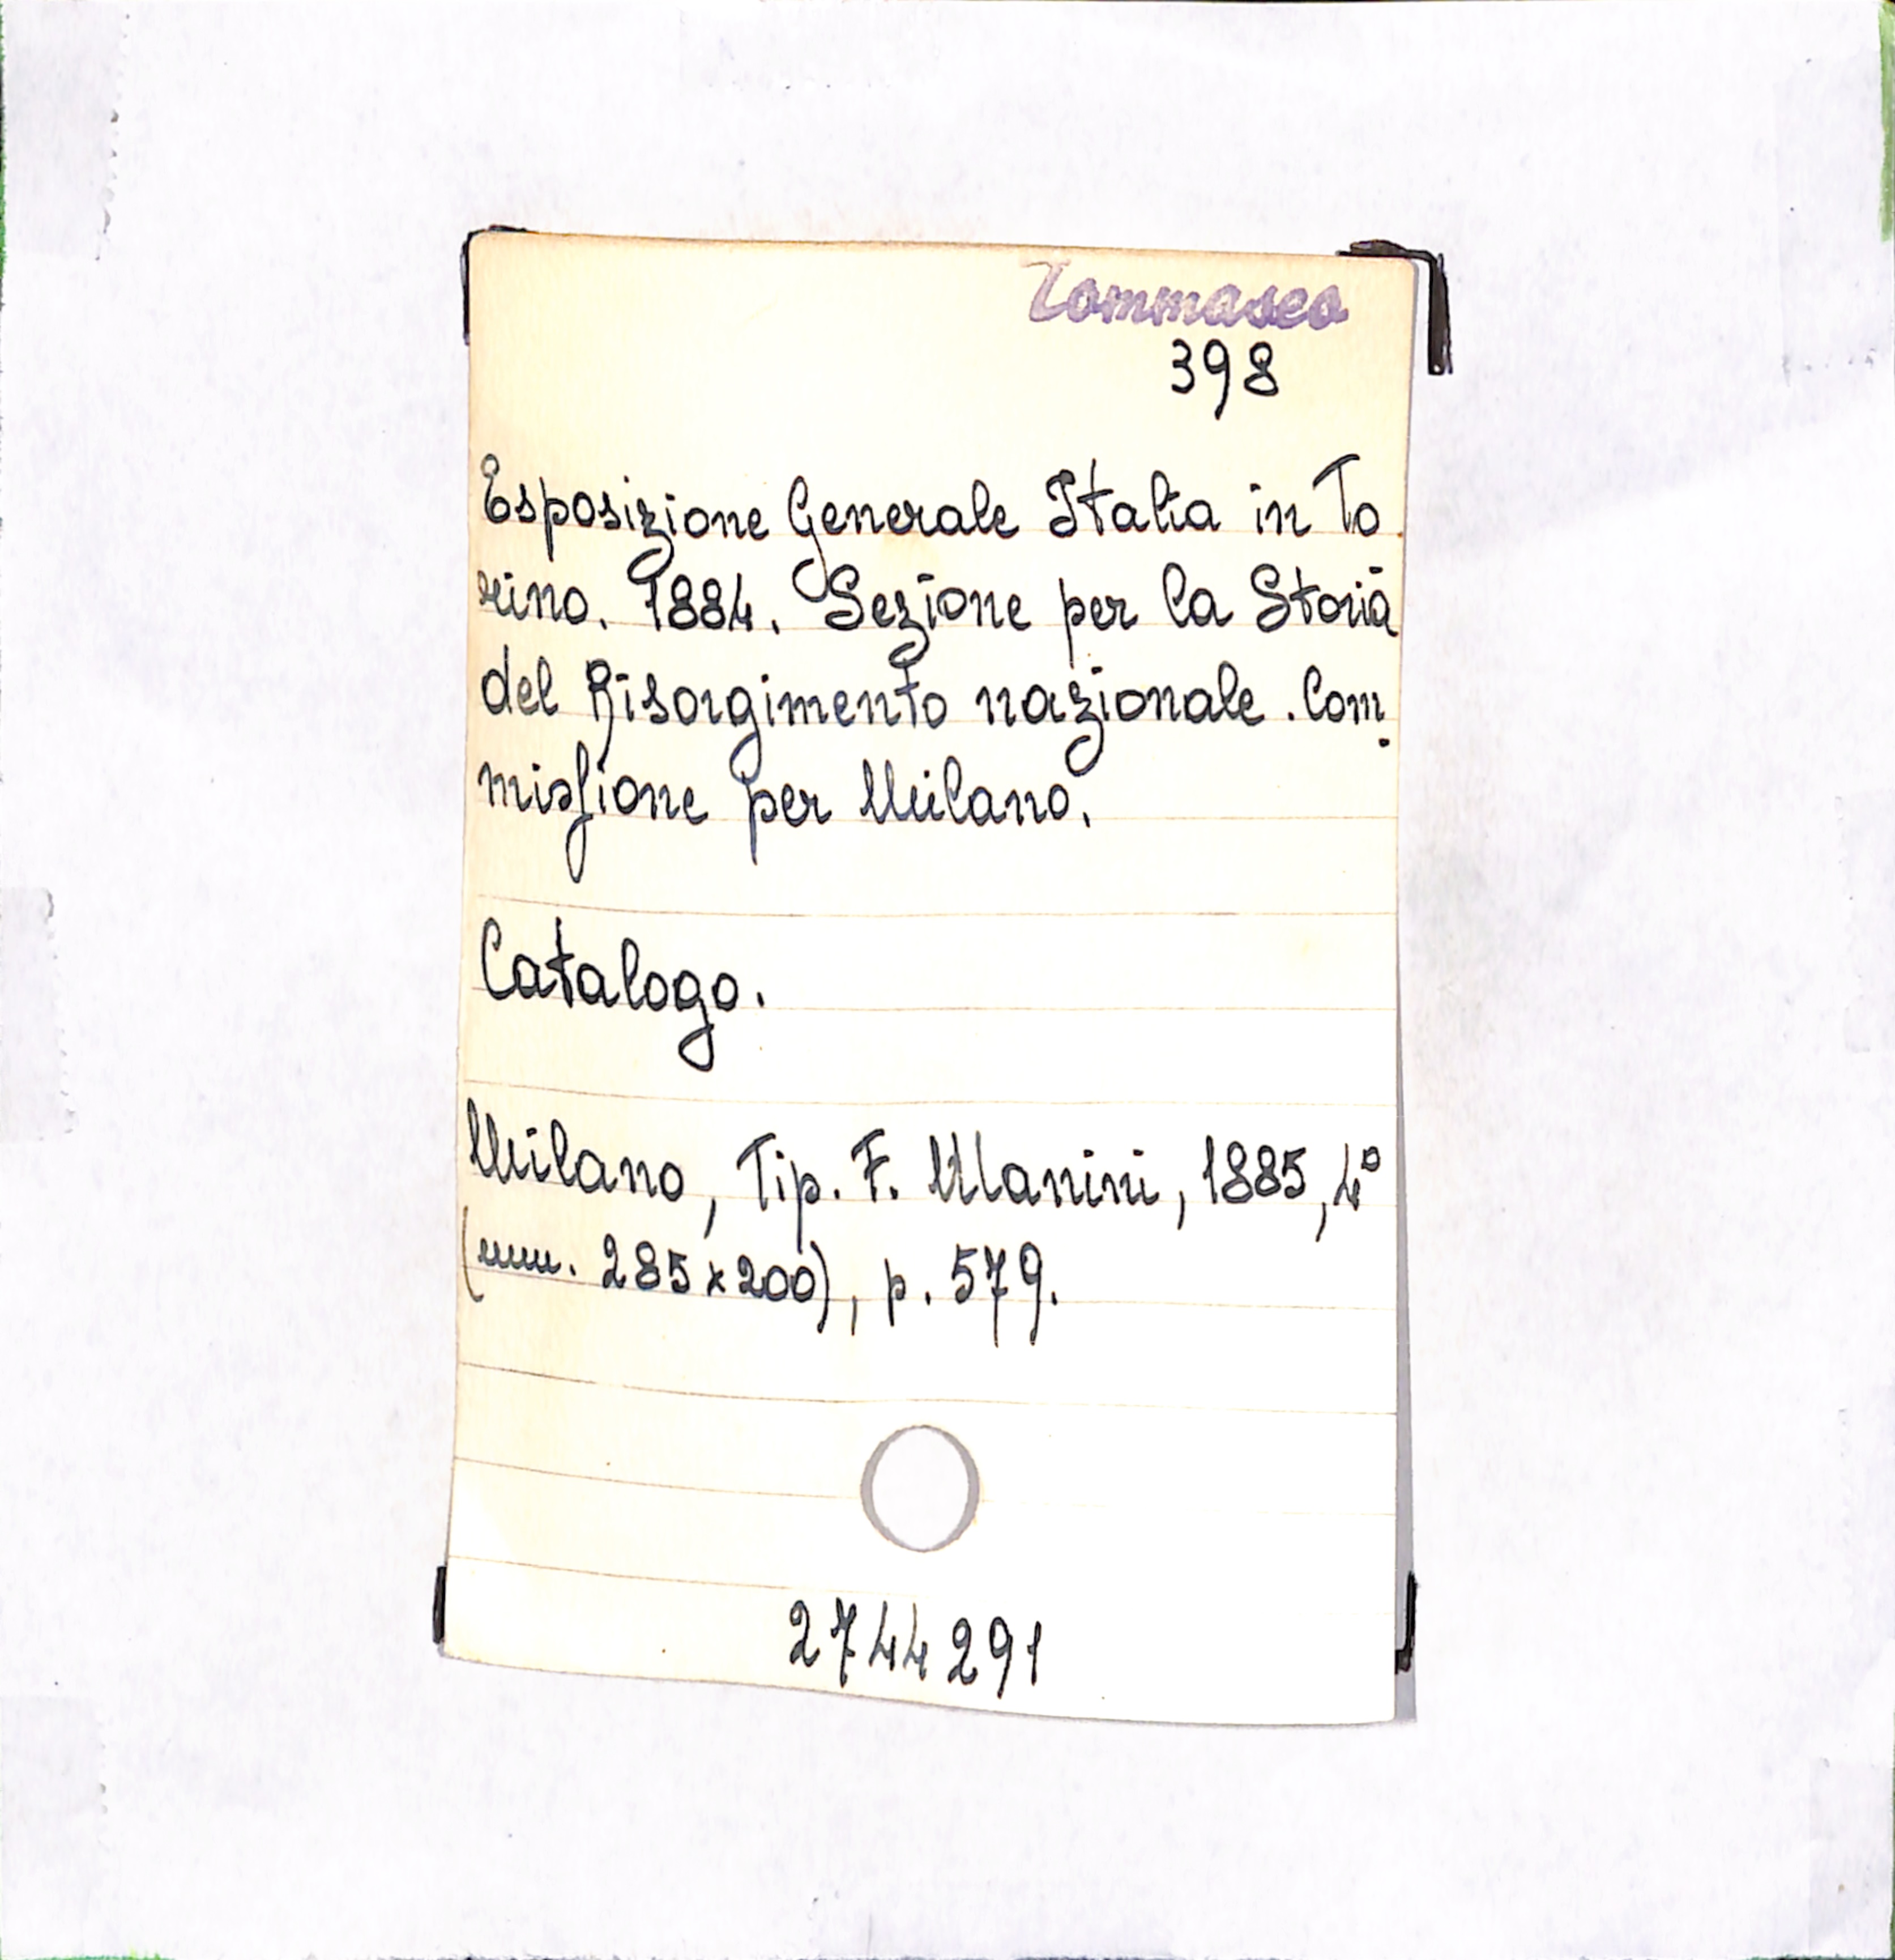 Tommaseo
398
Esposizione Generale Italia in To
rino. 1884. Sezione per la Storia
del Risorgimento nazionale. Com
missione per Milano.
Catalogo.
Milano, Tip. F. Manini, 1885, 4°
(mm. 285x200), p. 579.
2744291